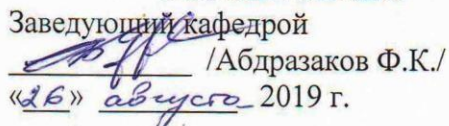 Заведующий кафедрой
/Абдразаков Ф.К./
«26» августа 2019 г.